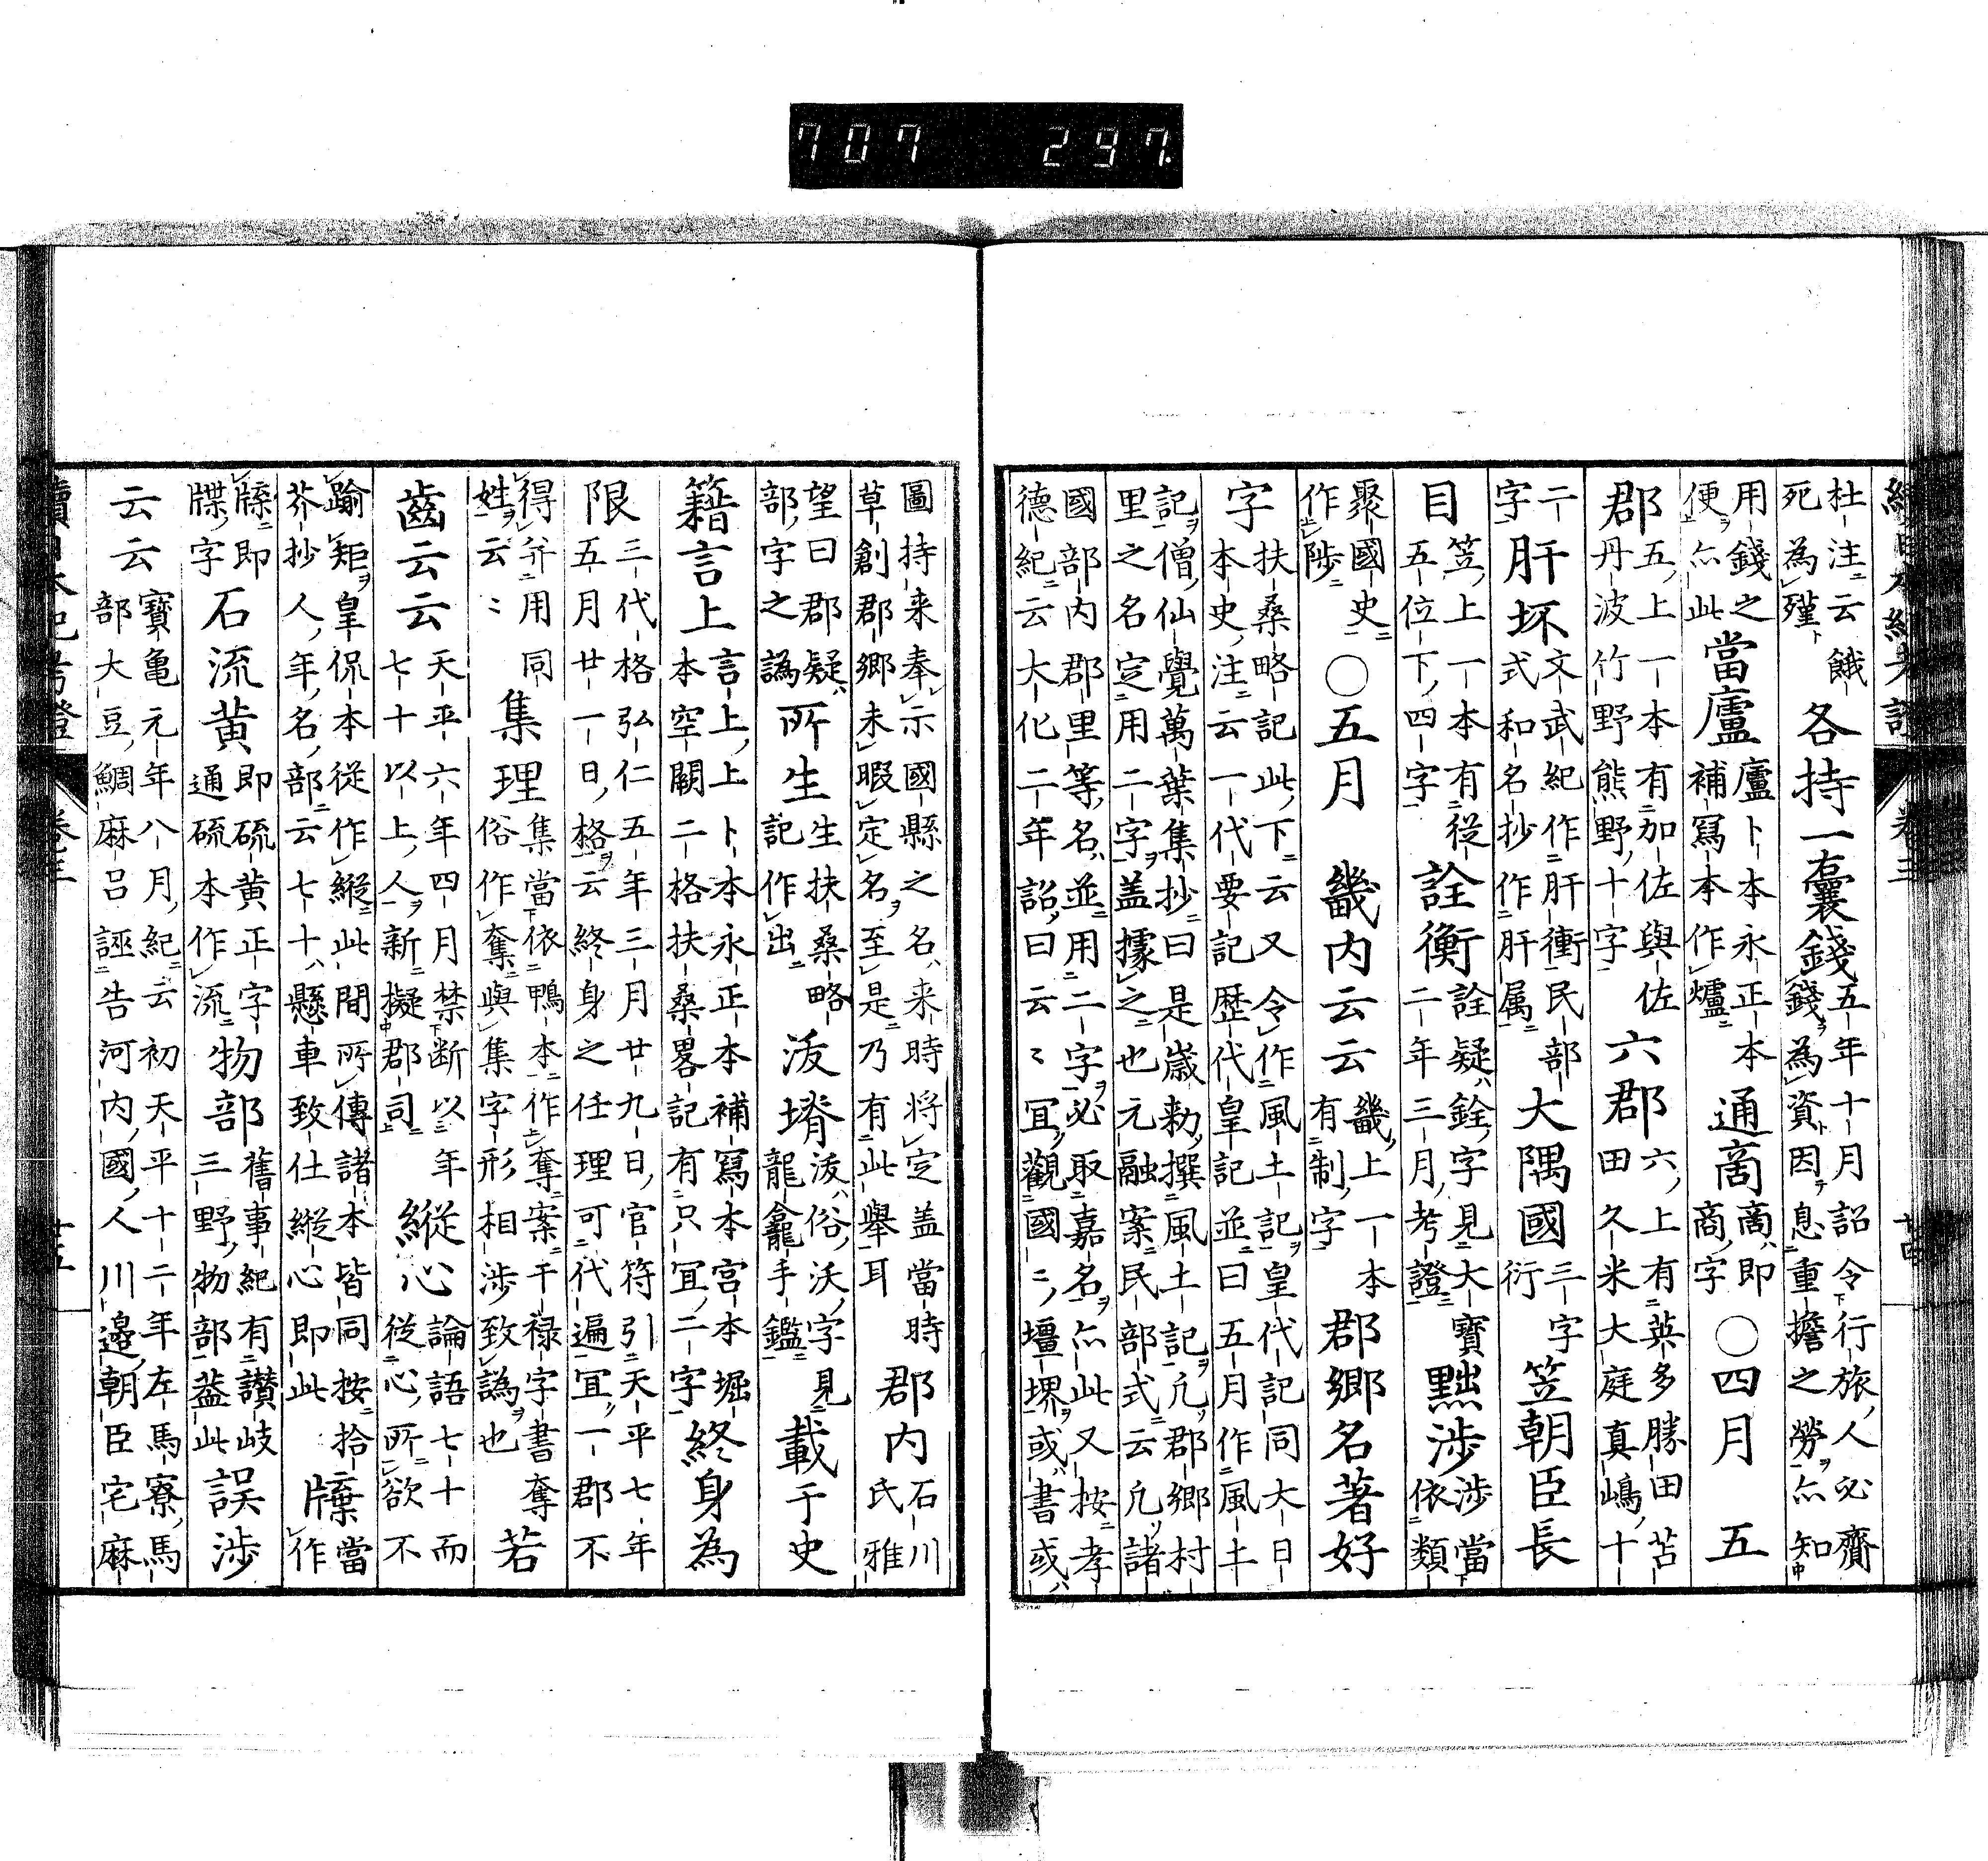 707 297.
杜注云餓
死為殣
各持一囊錢
五年十月詔令行旅人必齎
錢為資因息重擔之勞亦知
用錢之
便亦此
當廬
廬卜本永正本
補寫本作爐
通啇
啇即
商字
〇四月
五
郡
五上一本有加佐與佐
丹波竹野熊野十字
六郡
六上有英多勝田苫
田久米大庭真嶋十
二
字
肝坏
文武紀作肝衝民部
式和名抄作肝属
大隅國
三字
衍
笠朝臣長
目
笠上一本有從
五位下四字
詮衡
詮疑銓字見大寶
二年三月考證
黜渉
渉當
依類
聚國史
作陟
〇五月
畿内云云
畿上一本
有制字
郡鄉名著好
字
扶桑略記此下云又令作風土記皇代記同大日
本史注云一代要記歷代皇記並曰五月作風土
記僧仙覺萬葉集抄曰是歲勅撰風土記凡郡鄉村
里之名定用二字盖據之也元融案民部式云凡諸
國部内郡里等名並用二字必取嘉名亦此又按孝
德紀云大化二年詔曰云〻冝觀國〻壃堺或書或
圖持来奉示國縣之名来時将定盖當時
草創郡鄉未暇定名至是乃有此舉耳
郡内
石川
氏雅
望曰郡疑
部字之譌
所生
生扶桑略
記作出
沷塉
沷俗沃字見
龍龕手鑑
載于史
籍言上
言上上卜本永正本補寫本宮本堀
本空闕二格扶桑畧記有只冝二字
終身為
限
三代格弘仁五年三月廿九日官符引天平七年
五月廿一日格云終身之任理可代遍冝一郡不
得并用同
姓云〻
集理
集當依鴨本作奪案干禄字書奪
俗作奪與集字形相渉致譌也
若
齒云云
天平六年四月禁断以年
七十以上人新擬郡司
縱心
論語七十而
從心所欲不
踰矩皇侃本從作縱此間所傳諸本皆同按拾
芥抄人年名部云七十懸車致仕縱心即此
㯼
當
作
㯼即
牒字
石流黄
即硫黄正字
通硫本作流
物部
舊事紀有讃岐
三野物部葢此
誤渉
云云
寶亀元年八月紀云初天平十二年左馬寮馬
部大豆鯛麻呂誣告河内國人川邉朝臣宅麻